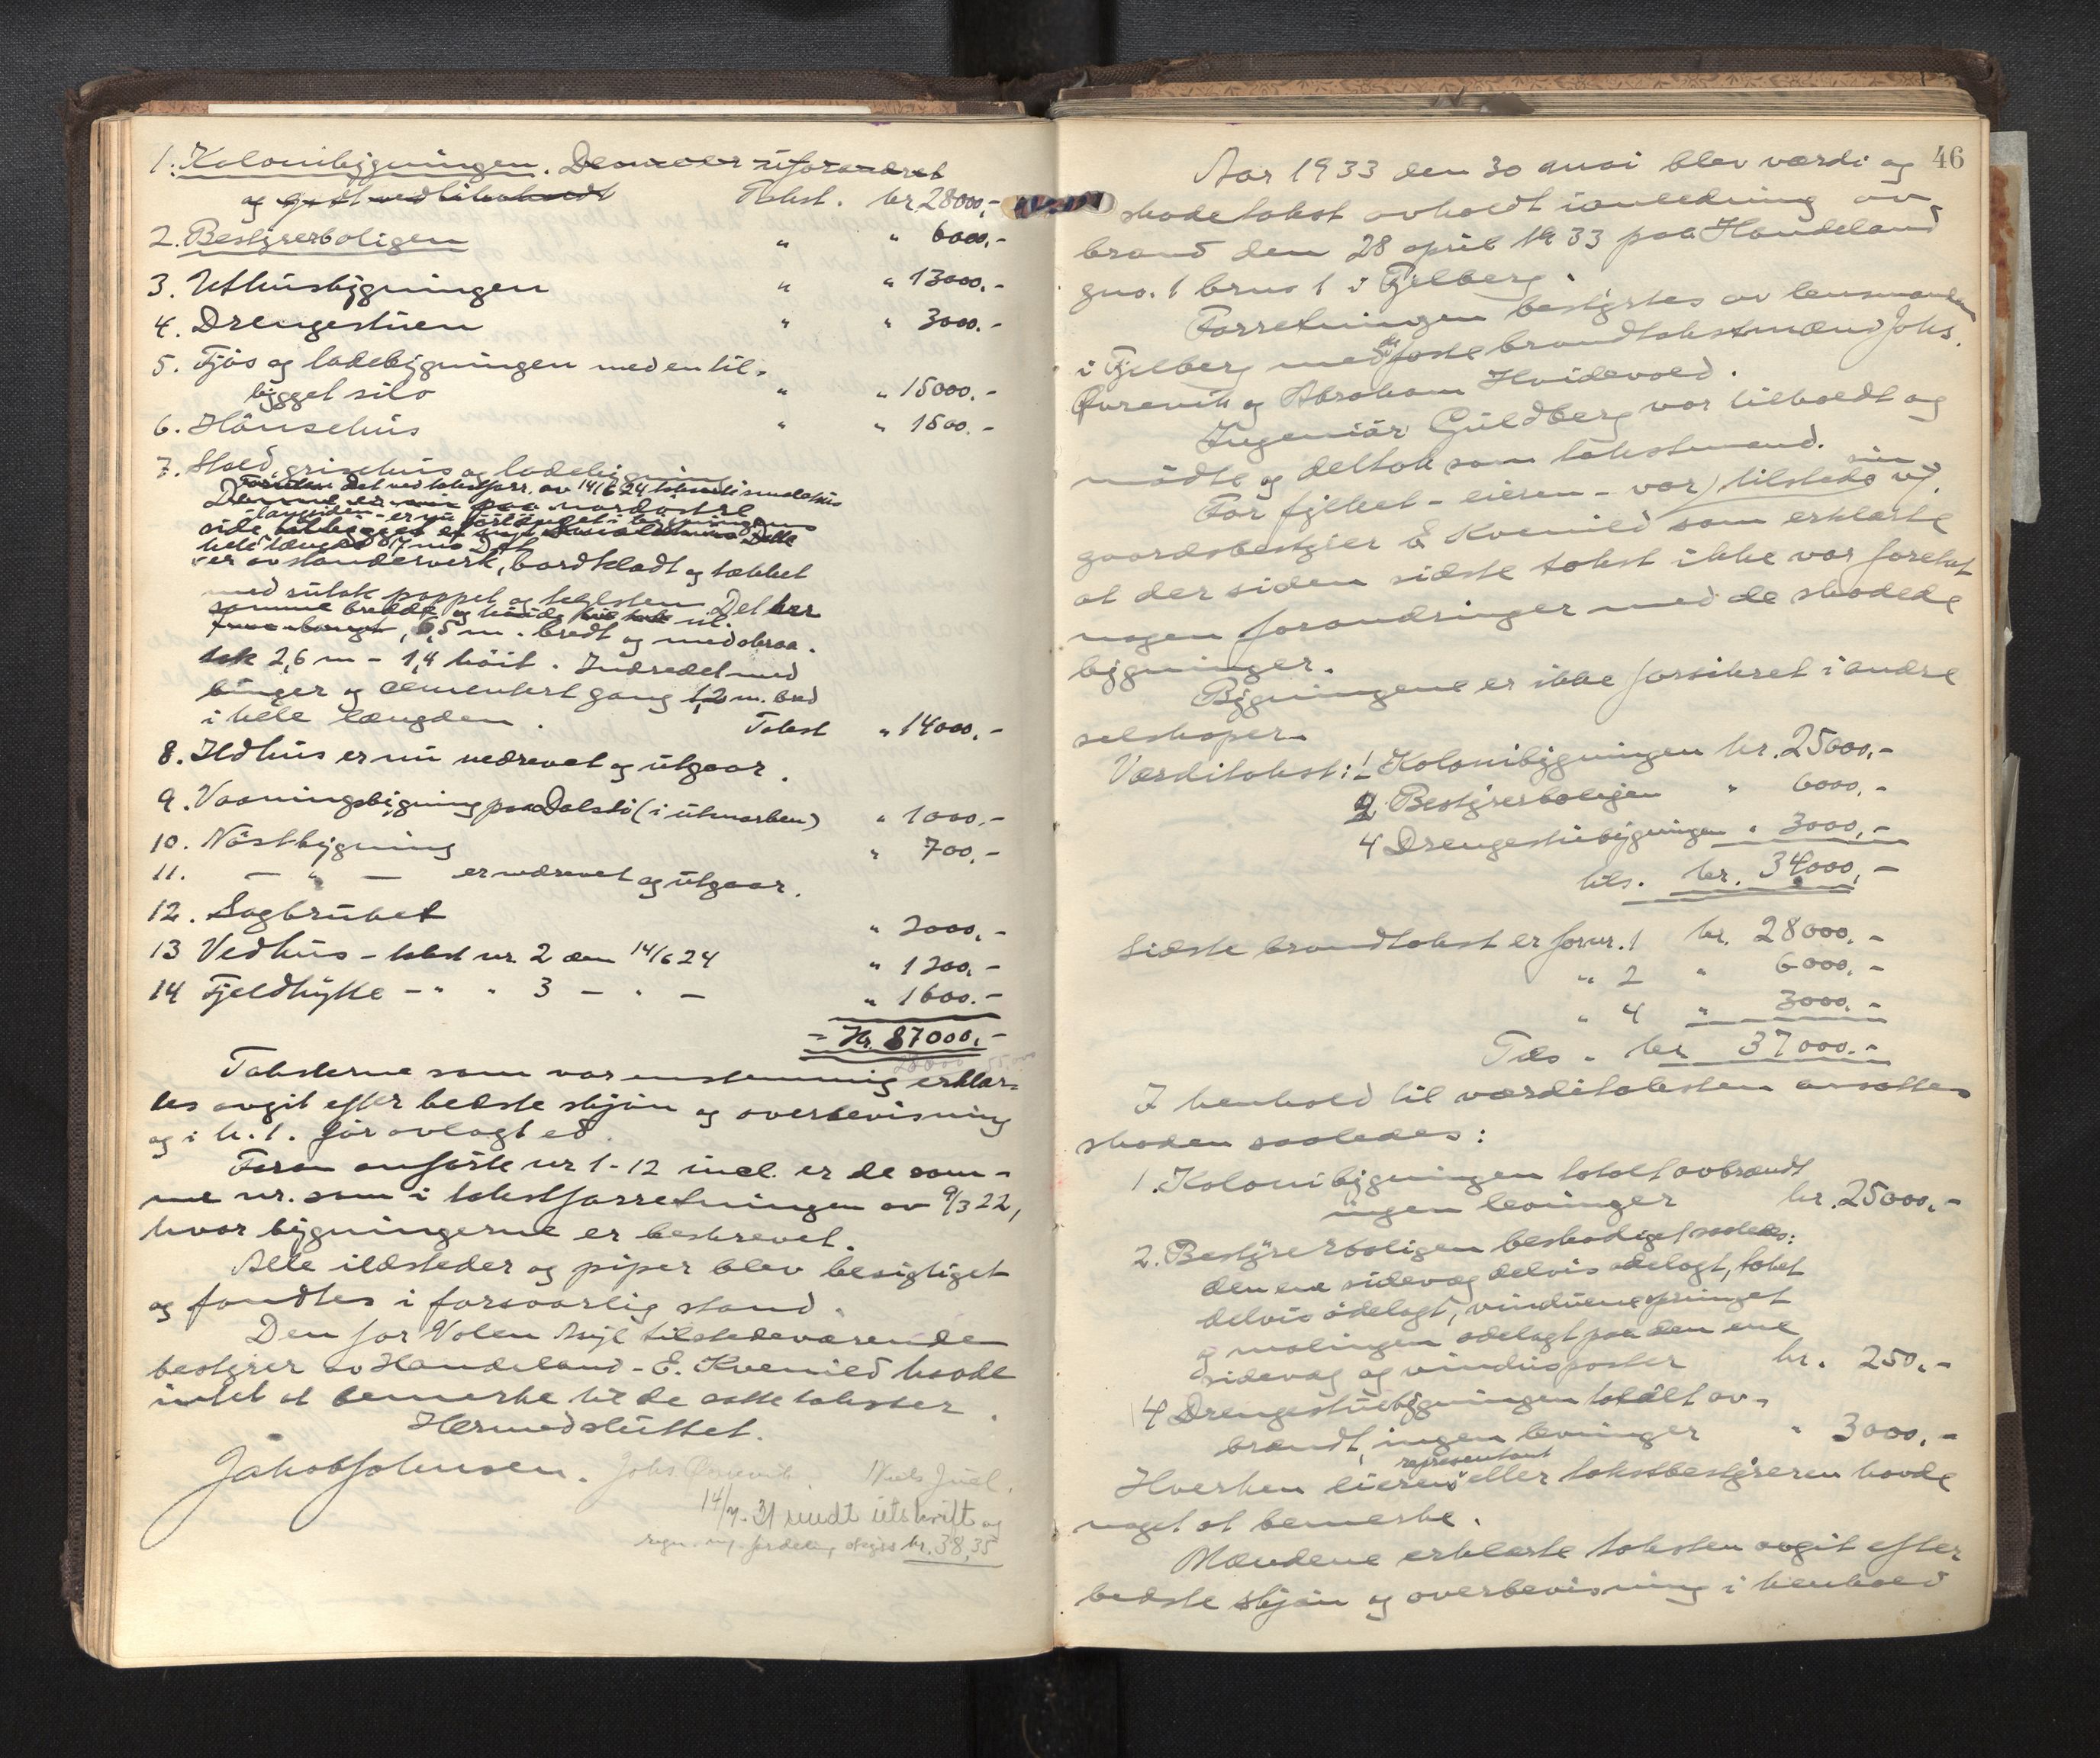 1. Kolonibygningen. Denne er uforandret
og godt vedlikeholdt Takst. kr 28000,-
2. Bestyrerboligen " " 6000,-
3. Uthusbygningen " " 13000,-
4. Drengestuen " " 3000,-
5. Fjøs og ladebygningen med en til-
bygget silo " " 15000,-
6. Hønsehus " " 1500,-
7. Stald, grisehus og ladebygning
Foruten det ved takstforr. av 14/6 24 takserte
Denne er nu paa nordøstre
side tilbygget
hele længde 17 m
er av standerverk, bordklædt og tækket
med sutak pappet og teglsten. Det har
samme bredde og høide
6,5 m. bredt og med skraa-
tak 2,6 m - 1,4 høit. Indredet med
binger og cementert gang 1,2 m. bred
i hele længden. Takst " 14000,-
8. Ildhus er nu nedrevet og utgaar.
9. Vaaningsbygning paa Dalsli (i utmarken) " 1000,-
10. Nøstbygning " 700,-
11. — " — er nedrevet og utgaar.
12. Sagbruket " 2000,-
13 Vedhus - takst nr. 2 den 14/6 24 " 1200,-
14 Fjeldhytte - " " 3 — " — " 1600.-
= Kr. 87000,-
Taksterne som var enstemmig erklær-
tes avgit efter bedste skjøn og overbevisning
og i h. t. før avlagt ed.
Foran anførte nr 1-12 incl. er de sam-
me nr. som i takstforretningen av 9/3 22,
hvor bygningerne er beskrevet.
Alle ildsteder og piper blev besigtiget
og fandtes i forsvarlig stand.
Den for Volen Asyl tilstedeværende
bestyrer av Handeland - E. Kvenild hadde
intet at bemerke til de satte takster.
Hermed sluttet.
Jakob Johnsen. Johs Øvrevik Niels Juel.
14/7. 31 sendt utskrift og
kr. 38,35
46
Aar 1933 den 30 mai blev værdi og
skadetakst avholdt i anledning av
brand den 28 april 1933 paa Handeland
gno. 1 brno 1 i Fjelberg.
Forretningen bestyrtes av lensmanden
i Fjelberg med de faste brandtakstmænd Johs.
Øvrevik og Abraham Hvidevold.
Ingeniør Guldberg var tilkaldt og
mødte og deltok som takstmand.
For fylket - eieren - var tilstede ved
gaardsbestyrer E. Kvenild som erklærte
at der siden sidste takst ikke var foretat
nogen forandringer med de skadede
bygninger.
Bygningene er ikke forsikret i andre
selskaper.
Værditakst: 1 Kolonibygningen kr. 25000,-
2 Bestyrerboligen " 6000,-
4 Drengestubygningen " 3000,-
tils. kr. 34000,-
Sidste brandtakst er for nr. 1 kr. 28000,-
" 2 " 6000,-
" 4 " 3000,-
Tils. kr 37000.-
I henhold til værditaksten ansattes
skaden saaledes:
1. Kolonibygningen totalt avbrændt
ingen levninger kr. 25000,-
2. Bestyrerboligen beskadiget saaledes:
den ene sidevæg delvis ødelagt, taket
delvis ødelagt, vinduene sprunget
og malingen ødelagt paa den ene
sidevæg og vindusposter kr. 250,-
4 Drengestuebygningen totalt av-
brændt, ingen levninger " 3000,-
Hverken eierens representant eller takstbestyreren havde
noget at bemerke.
Mændene erklærte taksten avgit efter
bedste skjøn og overbevisning i henhold